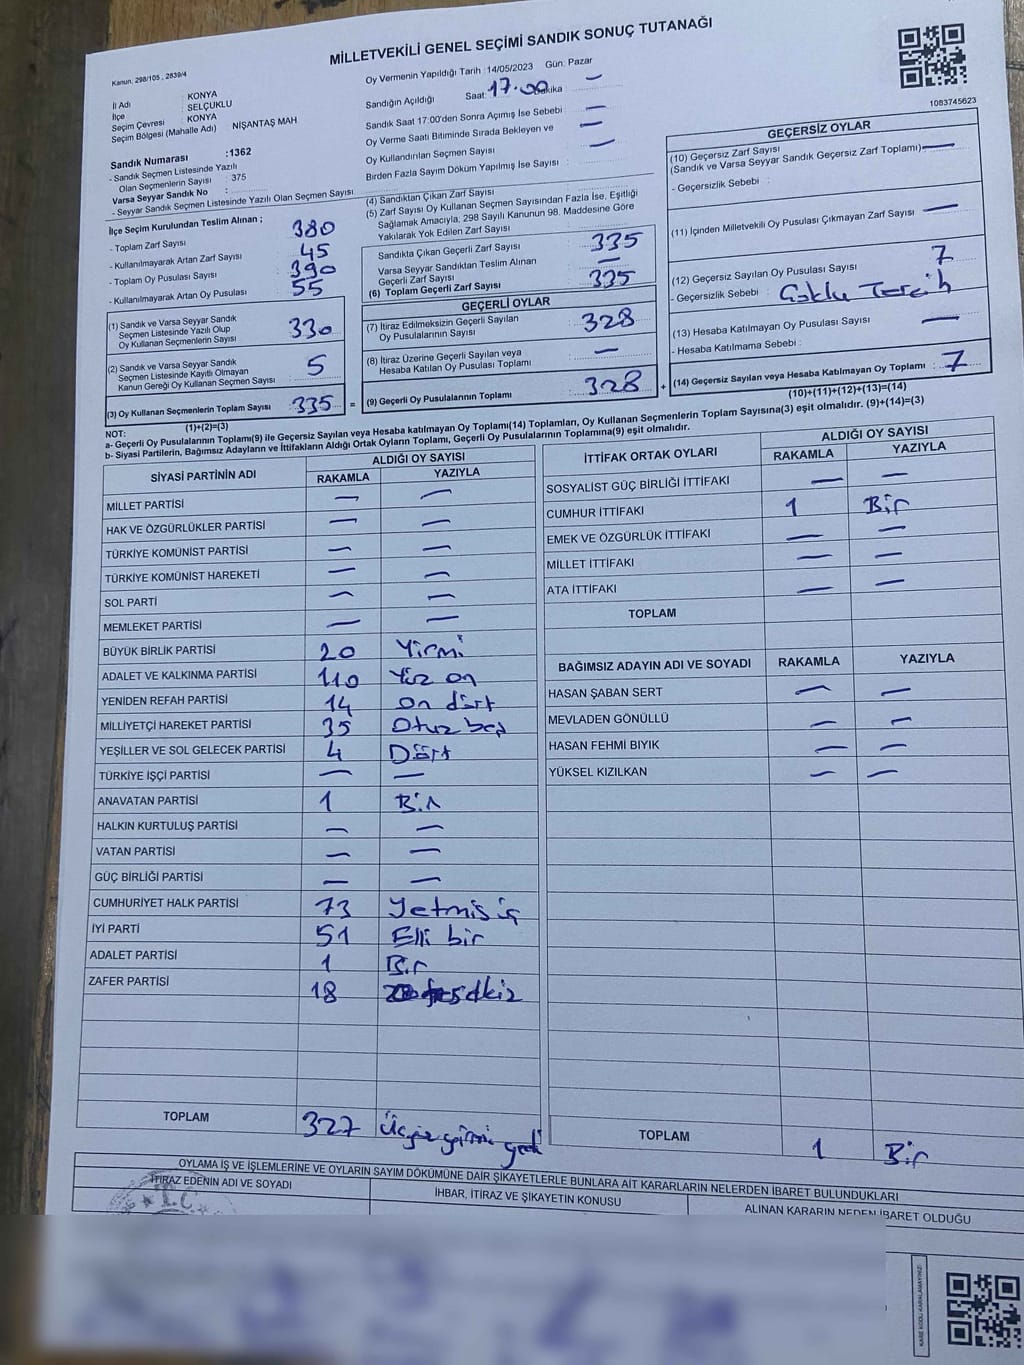 MİLLETVEKİLİ GENEL SEÇİMİ SANDIK SONUÇ TUTANAĞI
Kanun, 298/105, 2839/4
İl Adı : KONYA
İlçe : SELÇUKLU
Seçim Çevresi : KONYA
Seçim Bölgesi (Mahalle Adı) NİŞANTAŞ MAH
Sandık Numarası :1362
- Sandık Seçmen Listesinde Yazılı
Olan Seçmenlerin Sayısı : 375
Varsa Seyyar Sandık No :
- Seyyar Sandık Seçmen Listesinde Yazılı Olan Seçmen Sayısı
Oy Vermenin Yapıldığı Tarih : 14/05/2023 Gün: Pazar
Sandığın Açıldığı Saat: 17.00 Dakika —
Sandık Saat 17:00'den Sonra Açımış İse Sebebi —
Oy Verme Saati Bitiminde Sırada Bekleyen ve —
Oy Kullandırılan Seçmen Sayısı —
Birden Fazla Sayım Döküm Yapılmış İse Sayısı :
1083745623
İlçe Seçim Kurulundan Teslim Alınan ;
- Toplam Zarf Sayısı 380
- Kullanılmayarak Artan Zarf Sayısı 45
- Toplam Oy Pusulası Sayısı 390
- Kullanılmayarak Artan Oy Pusulası 55
(1) Sandık ve Varsa Seyyar Sandık
Seçmen Listesinde Yazılı Olup
Oy Kullanan Seçmenlerin Sayısı 330
(2) Sandık ve Varsa Seyyar Sandık
Seçmen Listesinde Kayıtlı Olmayan
Kanun Gereği Oy Kullanan Seçmen Sayısı 5
(3) Oy Kullanan Seçmenlerin Toplam Sayısı 335 =
(1)+(2)=(3)
(4) Sandıktan Çıkan Zarf Sayısı
(5) Zarf Sayısı Oy Kullanan Seçmen Sayısından Fazla İse, Eşitliği
Sağlamak Amacıyla, 298 Sayılı Kanunun 98. Maddesine Göre
Yakılarak Yok Edilen Zarf Sayısı
Sandıkta Çıkan Geçerli Zarf Sayısı 335
Varsa Seyyar Sandıktan Teslim Alınan —
Geçerli Zarf Sayısı
(6) Toplam Geçerli Zarf Sayısı 335
GEÇERLİ OYLAR
(7) İtiraz Edilmeksizin Geçerli Sayılan
Oy Pusulalarının Sayısı 328
(8) İtiraz Üzerine Geçerli Sayılan veya
Hesaba Katılan Oy Pusulası Toplamı —
(9) Geçerli Oy Pusulalarının Toplamı 328 +
GEÇERSİZ OYLAR
(10) Geçersiz Zarf Sayısı
(Sandık ve Varsa Seyyar Sandık Geçersiz Zarf Toplamı) —
- Geçersizlik Sebebi :
(11) İçinden Milletvekili Oy Pusulası Çıkmayan Zarf Sayısı —
(12) Geçersiz Sayılan Oy Pusulası Sayısı 7
- Geçersizlik Sebebi : Çoklu Tercih
(13) Hesaba Katılmayan Oy Pusulası Sayısı —
- Hesaba Katılmama Sebebi :
(14) Geçersiz Sayılan veya Hesaba Katılmayan Oy Toplamı : 7
(10)+(11)+(12)+(13)=(14)
NOT:
a- Geçerli Oy Pusulalarının Toplamı(9) ile Geçersiz Sayılan veya Hesaba katılmayan Oy Toplamı(14) Toplamları, Oy Kullanan Seçmenlerin Toplam Sayısına(3) eşit olmalıdır. (9)+(14)=(3)
b- Siyasi Partilerin, Bağımsız Adayların ve İttifakların Aldığı Ortak Oyların Toplamı, Geçerli Oy Pusulalarının Toplamına(9) eşit olmalıdır.
SİYASİ PARTİNİN ADI ALDIĞI OY SAYISI
RAKAMLA YAZIYLA
MİLLET PARTİSİ — —
HAK VE ÖZGÜRLÜKLER PARTİSİ — —
TÜRKİYE KOMÜNİST PARTİSİ — —
TÜRKİYE KOMÜNİST HAREKETİ — —
SOL PARTİ — —
MEMLEKET PARTİSİ — —
BÜYÜK BİRLİK PARTİSİ 20 Yirmi
ADALET VE KALKINMA PARTİSİ 110 Yüz on
YENİDEN REFAH PARTİSİ 14 on dört
MİLLİYETÇİ HAREKET PARTİSİ 35 Otuz beş
YEŞİLLER VE SOL GELECEK PARTİSİ 4 Dört
TÜRKİYE İŞÇİ PARTİSİ — —
ANAVATAN PARTİSİ 1 Bir
HALKIN KURTULUŞ PARTİSİ — —
VATAN PARTİSİ — —
GÜÇ BİRLİĞİ PARTİSİ — —
CUMHURİYET HALK PARTİSİ 73 Yetmiş üç
İYİ PARTİ 51 Elli bir
ADALET PARTİSİ 1 Bir
ZAFER PARTİSİ 18
TOPLAM 327 Üçyüz yirmi yedi
İTTİFAK ORTAK OYLARI ALDIĞI OY SAYISI
RAKAMLA YAZIYLA
SOSYALİST GÜÇ BİRLİĞİ İTTİFAKI — —
CUMHUR İTTİFAKI 1 Bir
EMEK VE ÖZGÜRLÜK İTTİFAKI — —
MİLLET İTTİFAKI — —
ATA İTTİFAKI — —
TOPLAM
BAĞIMSIZ ADAYIN ADI VE SOYADI RAKAMLA YAZIYLA
HASAN ŞABAN SERT — —
MEVLADEN GÖNÜLLÜ — —
HASAN FEHMİ BIYIK — —
YÜKSEL KIZILKAN — —
TOPLAM 1 Bir
OYLAMA İŞ VE İŞLEMLERİNE VE OYLARIN SAYIM DÖKÜMÜNE DAİR ŞİKAYETLERLE BUNLARA AİT KARARLARIN NELERDEN İBARET BULUNDUKLARI
İTİRAZ EDENİN ADI VE SOYADI İHBAR, İTİRAZ VE ŞİKAYETİN KONUSU ALINAN KARARIN NEDEN İBARET OLDUĞU
T.C.
KARE KODU KARALAMAYINIZ!